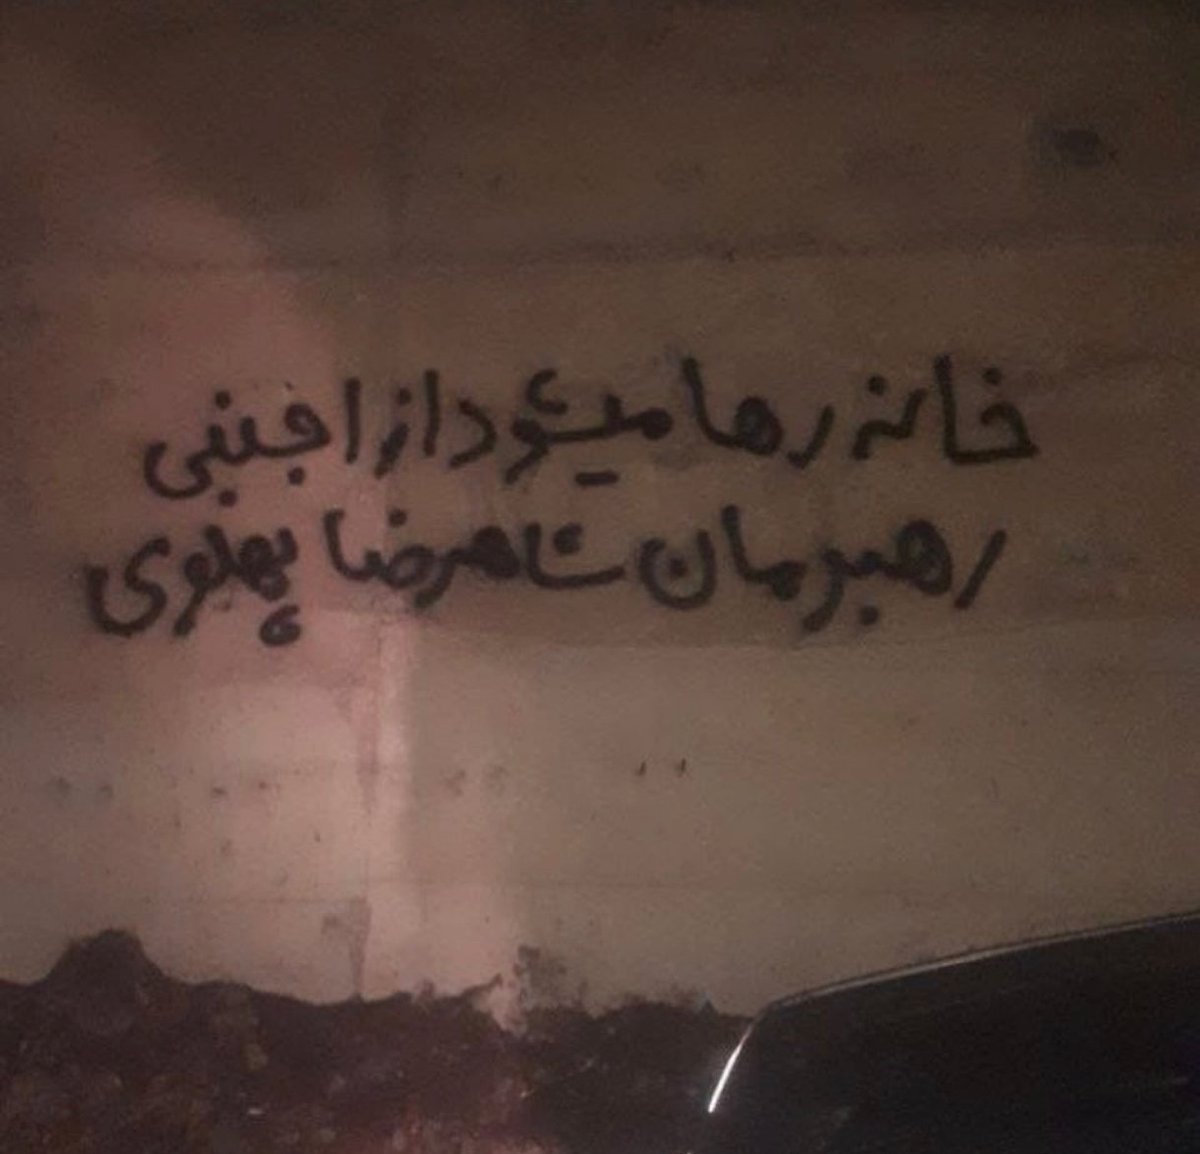 خانه رها میشود از اجنبی
رهبرمان شاهرضا پهلوی